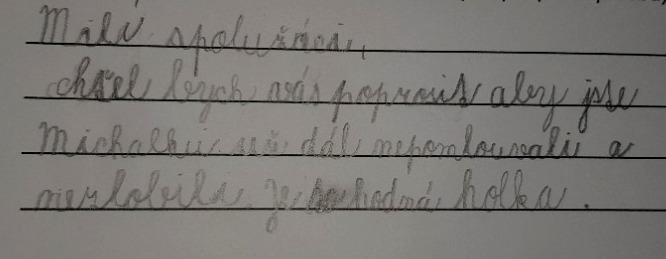 Milí spolužáci,
chtěl bych vás poprosit aby jse
Michalku už dál nepomlouvali a
nezlobili. Je to hodná holka.